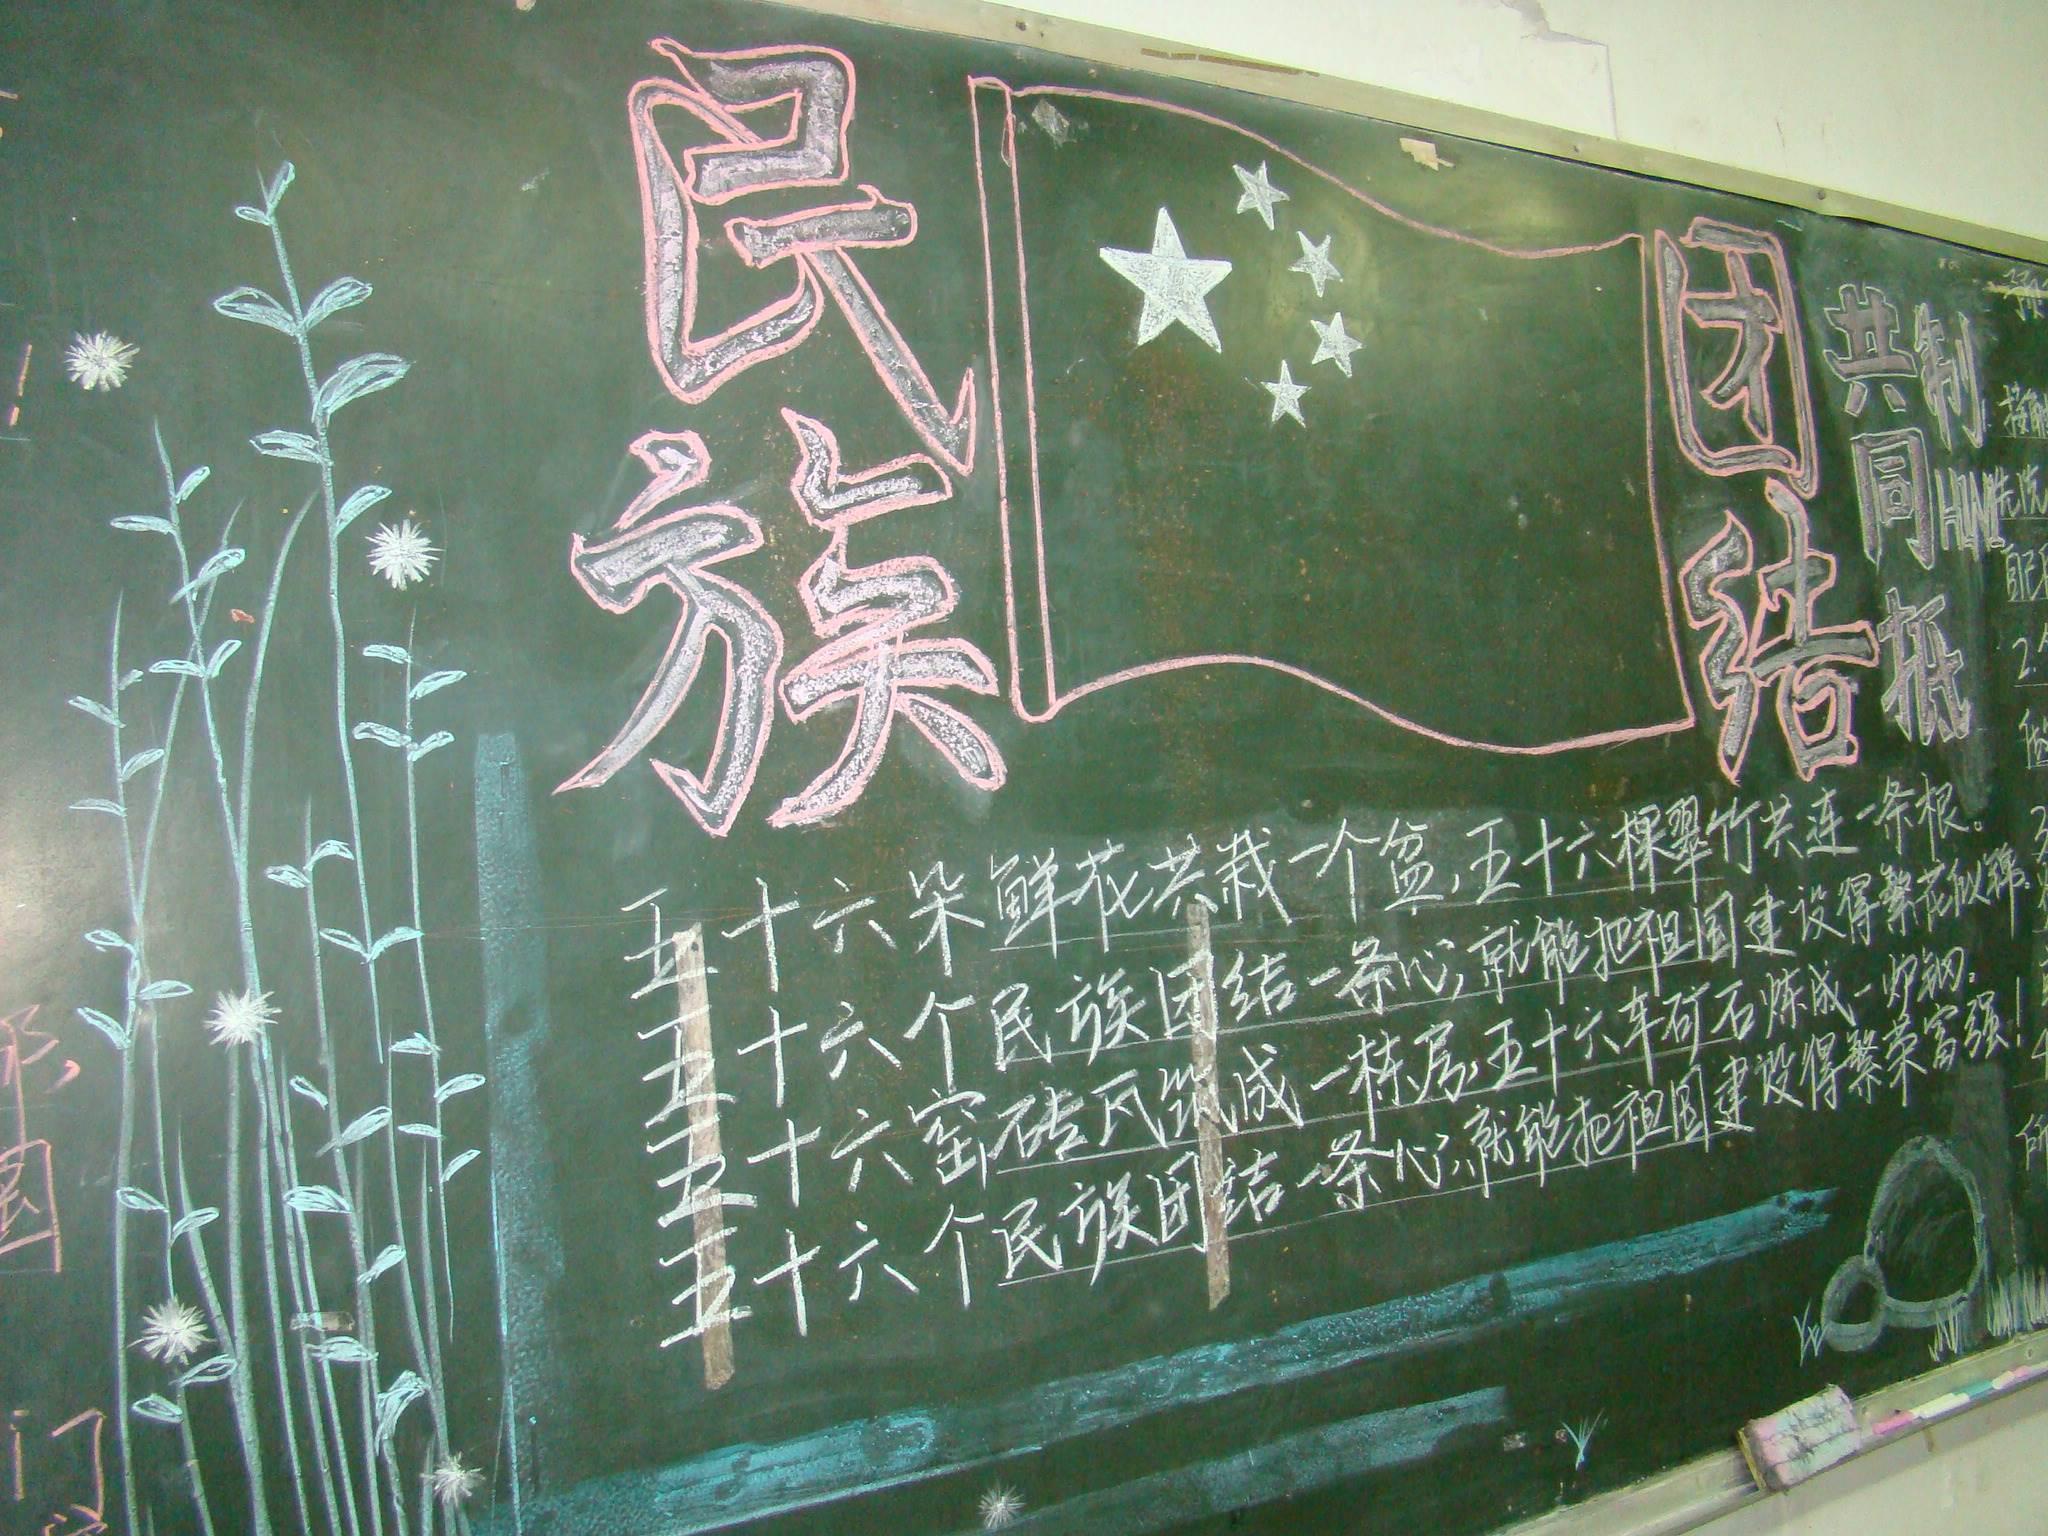 民族
团结
五十六朵鲜花共栽一个盆,五十六棵翠竹共连一条根。
五十六个民族团结一条心,就能把祖国建设得繁花似锦。
五十六窑砖瓦筑成一栋房,五十六车矿石炼成一炉钢。
五十六个民族团结一条心,就能把祖国建设得繁荣富强!
共同抵
制H1N1